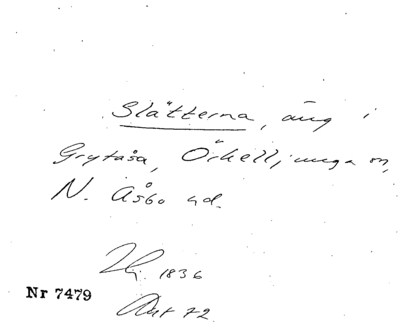 Slätterna, äng i
Grytåsa, Örkelljunga sn,
N. Åsbo hd.
1836
Nr 7479
Avt 72